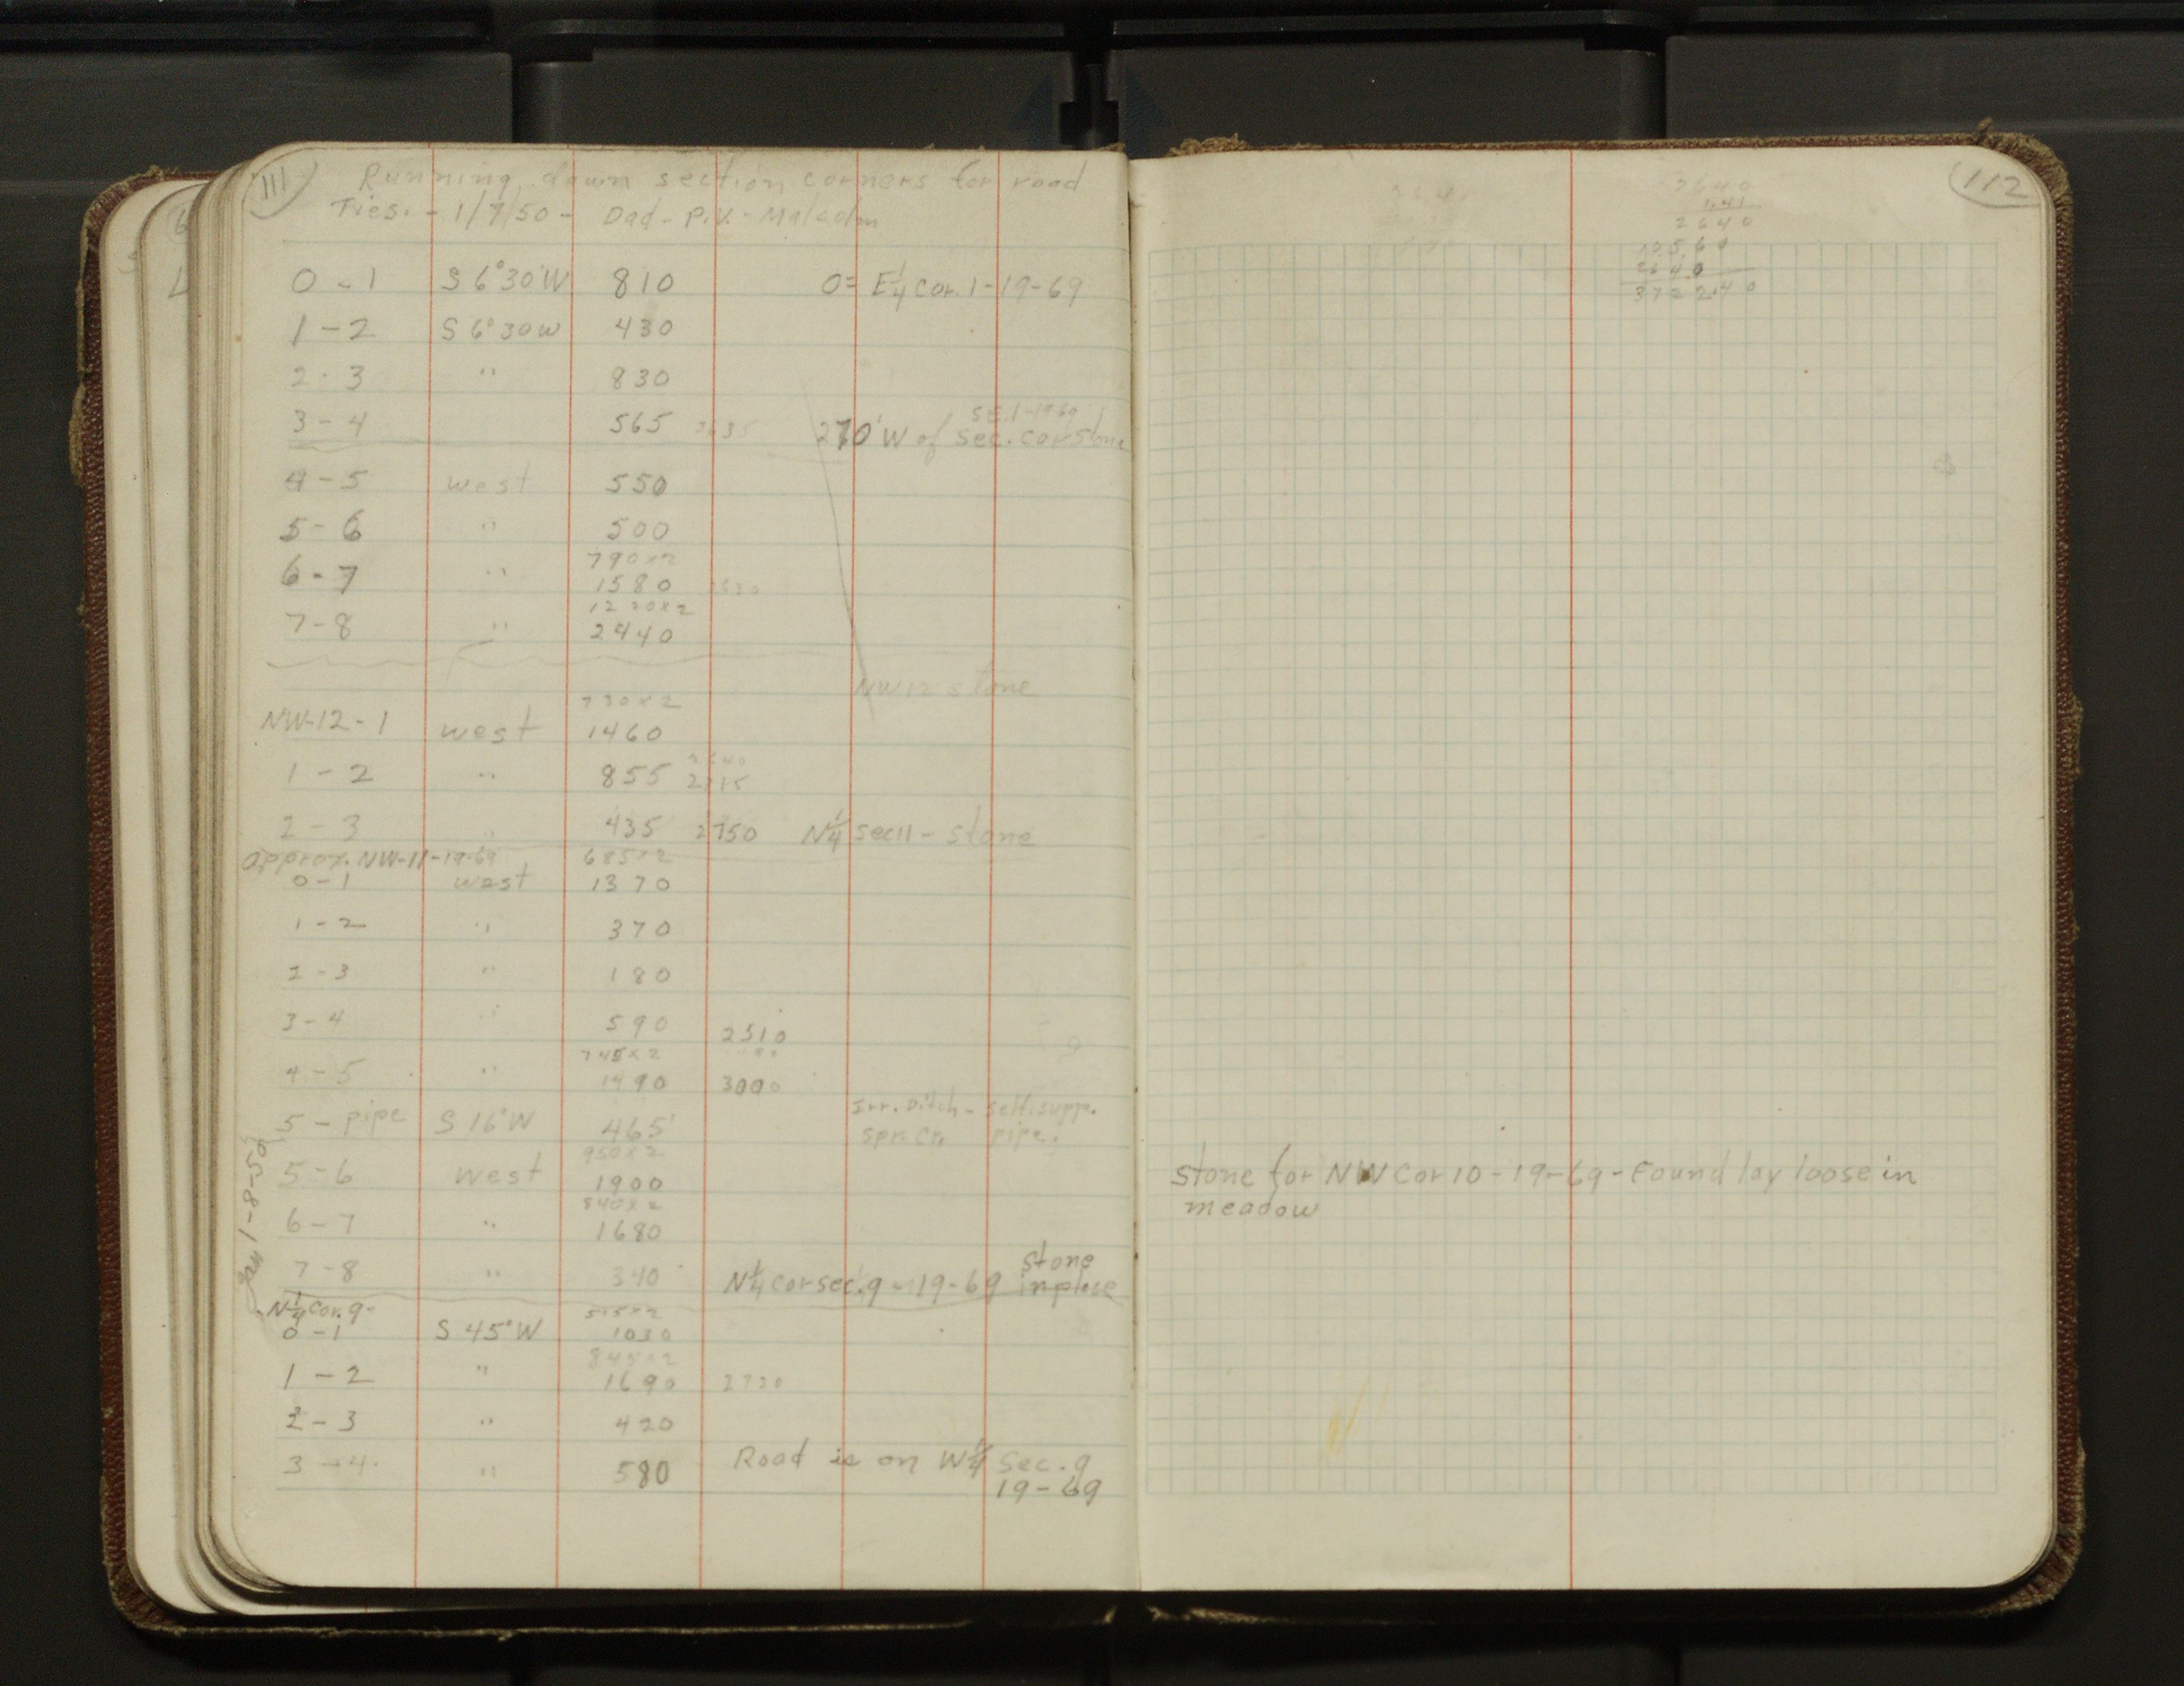 111
Running down section corners for road
Ties. - 1/7/50 - Dad - P.V. - Malcolm
0 - 1 S 6°30'W 810 0 = E 1/4 cor. 1-19-69
1 - 2 S 6°30W 430
2 - 3 " 830
SE.1-19-69
3 - 4 565 2635 270' W of sec. cor stone
4 - 5 west 550
5 - 6 " 500
790x2
6 - 7 " 1580 2630
1220x2
7 - 8 " 2440
NW 12 stone
730x2
NW-12 - 1 west 1460
2640
1 - 2 " 855 2315
2 - 3 " 435 2750 N 1/4 sec 11 - stone
approx. NW-11-19-69 685x2
0 - 1 west 1370
1 - 2 " 370
2 - 3 " 180
3 - 4 " 590 2510
745x2
4 - 5 " 1490 3000
Irr. Ditch - self. supp.
5 - pipe S 16°W 465' Spr. Cr. pipe.
950x2
5 - 6 west 1900
840x2
6 - 7 " 1680
stone
7 - 8 " 340 N 1/4 cor sec. 9 - 19-69 in place
Jan 1-8-50
N 1/4 cor. 9 - 515x2
0 - 1 S 45°W 1030
845x2
1 - 2 " 1690 2720
2 - 3 " 420
3 - 4 " 580 Road is on W 1/4 Sec. 9
19-69
112
2640
1.41
2640
10560
2640
3722.40
Stone for NW Cor 10-19-69 - Found lay loose in
meadow